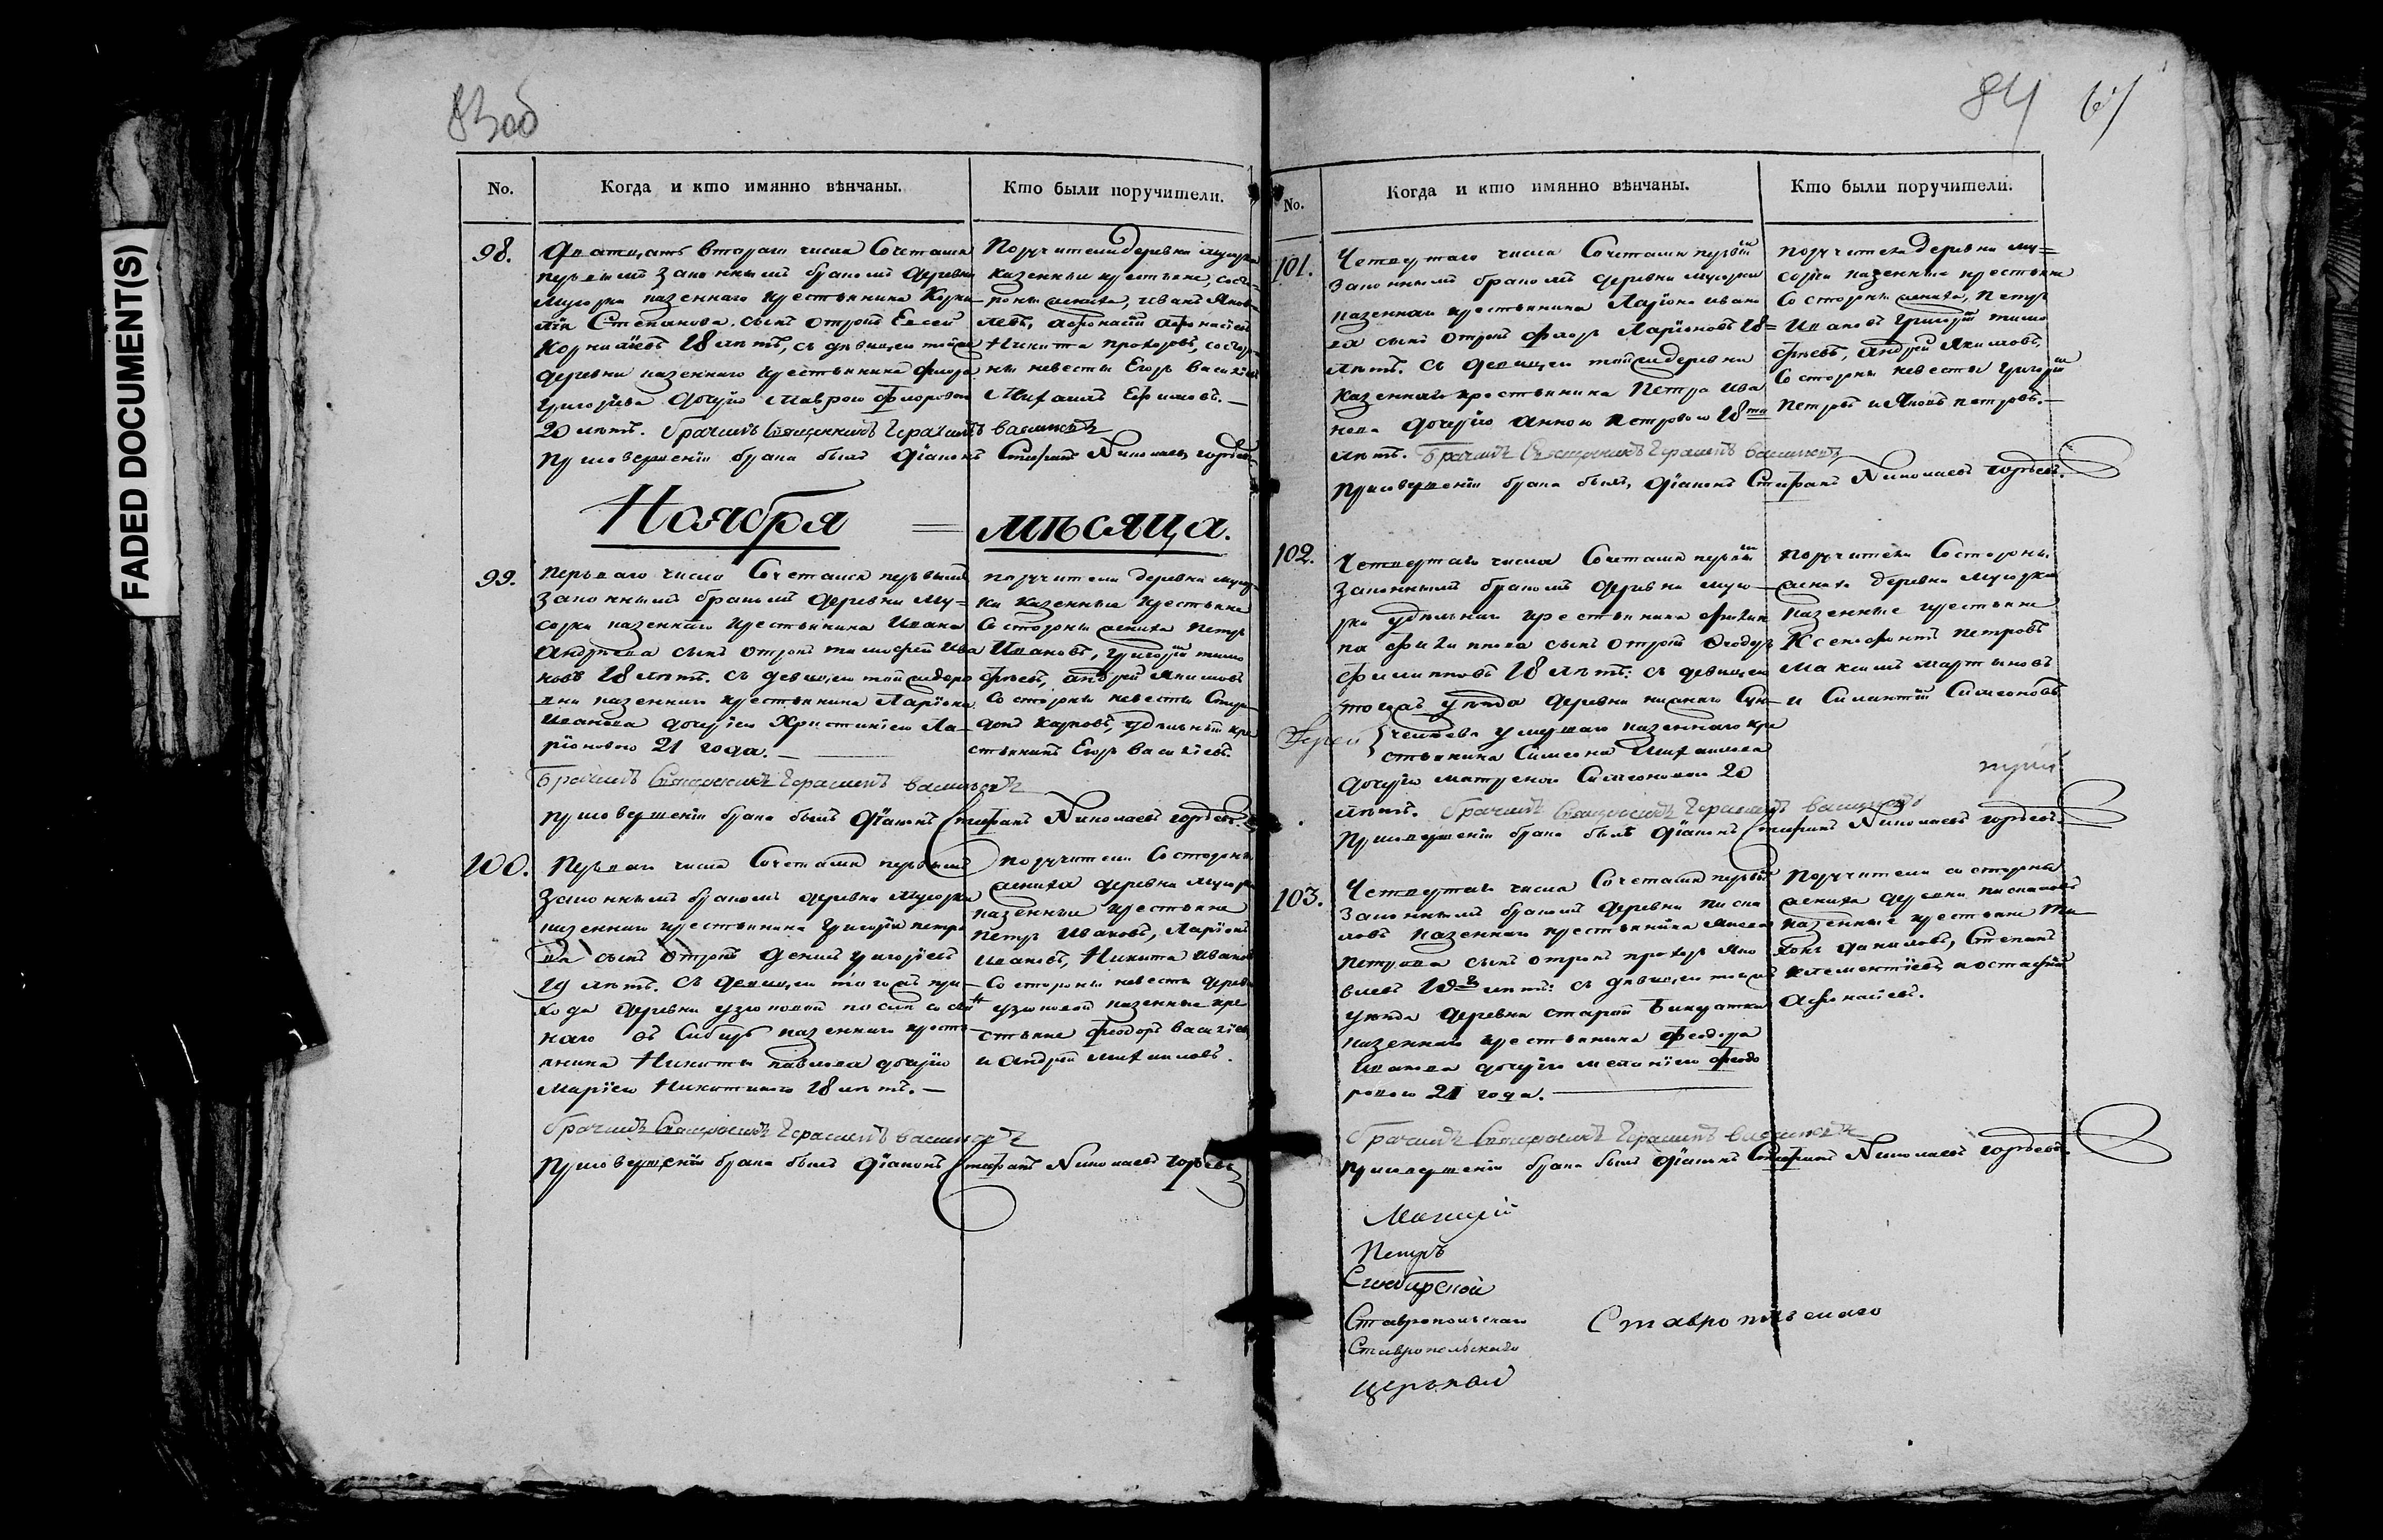 FADED DOCUMENT(S)
83об
No.
Когда и кто имянно вѣнчаны.
Кто были поручители.
98.
Дватцать втораго числа Сочетался
первымъ законнымъ бракомъ деревни
Мусорки казеннаго крестьянина Корни-
лія Степанова сынъ отрокъ Елсей
Корниліевъ 18 лѣтъ, съ девицею тойже
деревни казеннаго крестьянина Флора
Григорьева дочерью Маврою Флоровою
20 лѣтъ. брачилъ Священникъ Герасимъ Васильевъ
При совершеніи брака былъ Діаконъ Стефанъ Николаевъ Гордѣевъ
Поручители деревни Мусорки
казенные крестьяне, со сто-
роны жениха, Иванъ Яков-
левъ, Афонасій Афонасьевъ
Никита Прохоровъ, со сторо-
ны невесты Егоръ Василіевъ
Михаилъ Ефимовъ.—
Ноября = мѣсяца.
99.
Перваго числа Сочетался первымъ
Законнымъ бракомъ деревни Му=
сорки казеннаго крестьянина Ивана
Андреева сынъ отрокъ Тимофей Ива
новъ 18 лѣтъ. съ девицею тойже дере
вни казеннаго крестьянина Ларіона
Иванова дочерью Христиніею Ла-
ріоновою 21 года.—
Брачилъ Священникъ Герасимъ Васильевъ
При совершеніи брака былъ Діаконъ Стефанъ Николаевъ Гордѣевъ.
поручители деревни Мусор-
ки казенные крестьяне
Со стороны жениха Петръ
Ивановъ, Григорій Тимо
фѣевъ, Андрей Якимовъ
Со стороны невесты Спири-
донъ Карповъ, удѣльный кре
стьянинъ Егоръ Василіевъ.
100.
Перваго числа Сочетался первымъ
Законнымъ бракомъ деревни Мусорки
казеннаго крестьянина Григорія Петро
ва сынъ Отрокъ Денисъ Григорьевъ
19 лѣтъ. Съ девицею тогожъ при-
хода деревни Узюковой посел
наго въ Сибирь казеннаго кресть
янина Никиты Павлова дочерью
Маріею Никитиною 18 лѣтъ.—
брачилъ Священникъ Герасимъ Васильевъ
При совершеніи брака былъ Діаконъ Стефанъ Николаевъ Гордѣевъ
поручители Со стороны
жениха деревни Мусорки
казенные крестьяне
Петръ Ивановъ, Ларіонъ
Ивановъ, Никита Ивановъ
Со стороны невесты деревни
Узюковой казенные кре
стьяне Феодоръ Василіевъ
и Андрей Михаиловъ.
84 67
No.
Когда и кто имянно вѣнчаны.
Кто были поручители.
101.
Четвертаго числа Сочетался первый
законнымъ бракомъ деревни Мусорки
казеннаго крестьянина Ларіона Ивано
ва сынъ отрокъ Флоръ Ларіоновъ 18=
лѣтъ. съ девицею тойже деревни
казеннаго крестьянина Петра Ива
нова дочерью Анною Петровою 18ти
лѣтъ. Брачилъ Священникъ Герасимъ Васильевъ
При совершеніи брака былъ, Діаконъ Стефанъ Николаевъ Гордѣевъ.
поручители деревни Му=
сорки казенные крестьяне
Со стороны жениха, Петръ
Ивановъ Григорій Тимо
фѣевъ, Андрей Якимовъ,
Со стороны невесты Григорій
Петровъ и Яковъ Петровъ.—
102.
Четвертаго числа Сочетался первый
Законнымъ бракомъ деревни Мусо-
рки удѣльнаго крестьянина Филип
па Филиппова сынъ отрокъ Феодоръ
Филипповъ 18 лѣтъ: съ девицею
тогожъ уѣзда деревни
умершаго казеннаго кре
стьянина Симеона Михаилова
дочерью Матреною Симеоновою 20
лѣтъ. брачилъ Священникъ Герасимъ Васильевъ
При совершеніи брака былъ Діаконъ Стефанъ Николаевъ Гордѣевъ.
поручители Со стороны
жениха деревни Мусорки
казенные крестьяне
Ксенофонтъ Петровъ
Максимъ Мартыновъ
и Силантій Симеоновъ
103.
Четвертаго числа Сочетался первый
Законнымъ бракомъ деревни Писка
ловъ казеннаго крестьянина Якова
Петрова сынъ отрокъ Прохоръ Яко
влевъ 18 лѣтъ: съ девицею тогожъ
уѣзда деревни старой Бинратки
казеннаго крестьянина Феодора
Иванова дочерью Меланіею Феодо
ровою 21 года.—
брачилъ Священникъ Герасимъ Васильевъ
При совершеніи брака былъ Діаконъ Стефанъ Николаевъ Гордѣевъ.
Поручители со стороны
жениха деревни Пискаловъ
казенные крестьяне Ти
хонъ Даниловъ, Степанъ
Клементіевъ,
Афонасіевъ.
Петръ
Симбирской
Ставропольскаго Ставропольскаго
Ставропольскаго
церькви